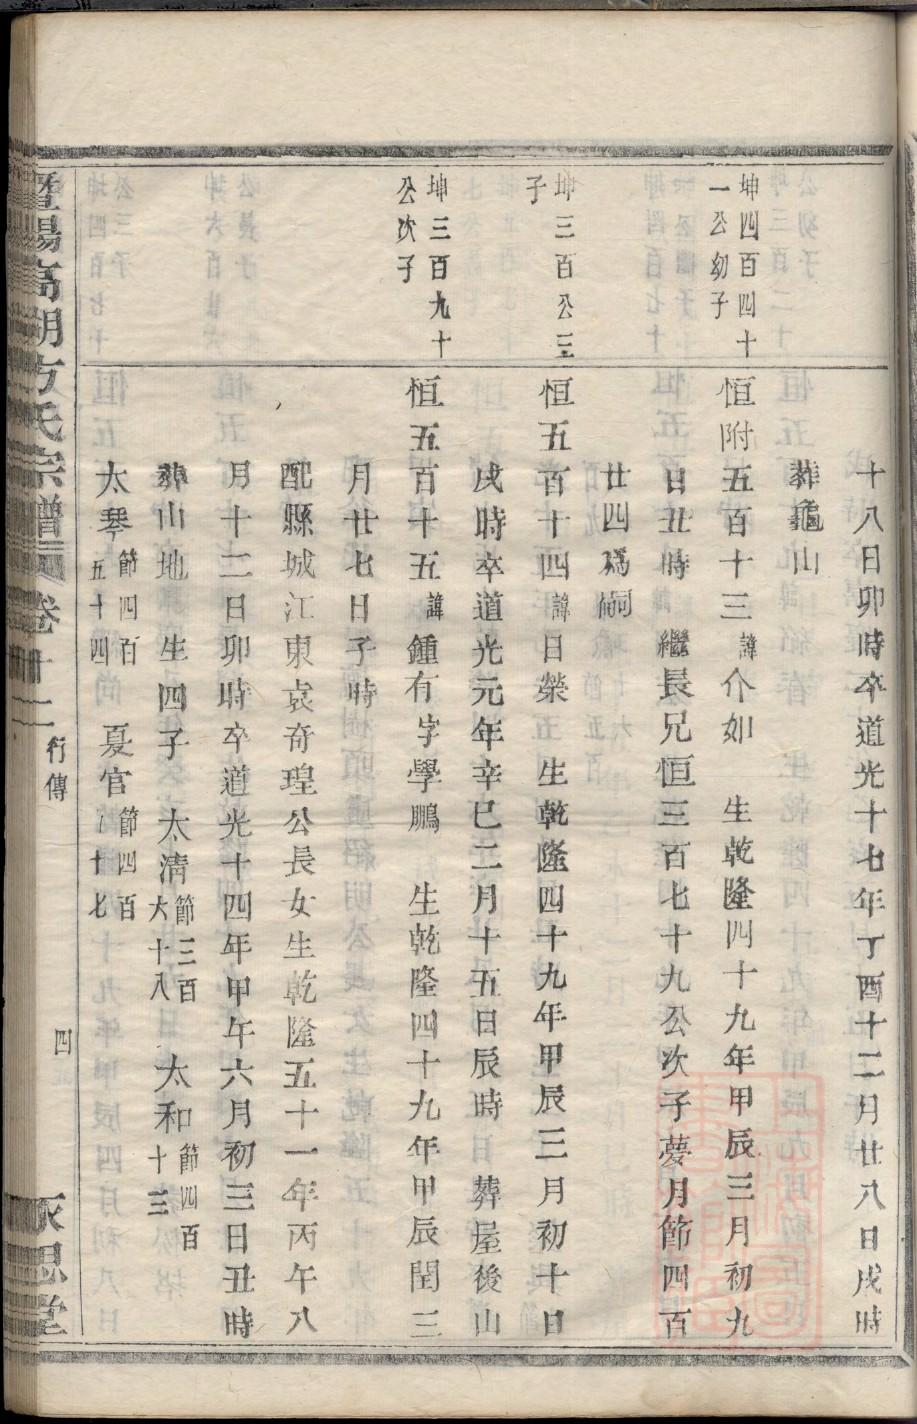 十八日卯時卒道光十七年丁酉十二月廿八日戌時
葬龜山
坤四百四十
一公幼子
恒附五百十三諱介如 生乾隆四十九年甲辰三月初九
日丑時 繼長兄恒三百七十九公次子夢月節四百
廿四爲嗣
坤三百公三
子
恒五百十四諱日榮 生乾隆四十九年甲辰三月初十日
戌時卒道光元年辛巳二月十五日辰時 葬屋後山
坤三百九十
公次子
恒五百十五諱鍾有字學鵬 生乾隆四十九年甲辰閏三
月廿七日子時
配縣城江東袁奇瑝公長女生乾隆五十一年丙午八
月十二日卯時卒道光十四年甲午六月初三日丑時
葬山地 生四子太清節三百六十八 太和節四百十三
太琴節四百五十四 夏官節四百八十七
暨陽高湖方氏宗譜 卷十二 行傳 四 永思堂